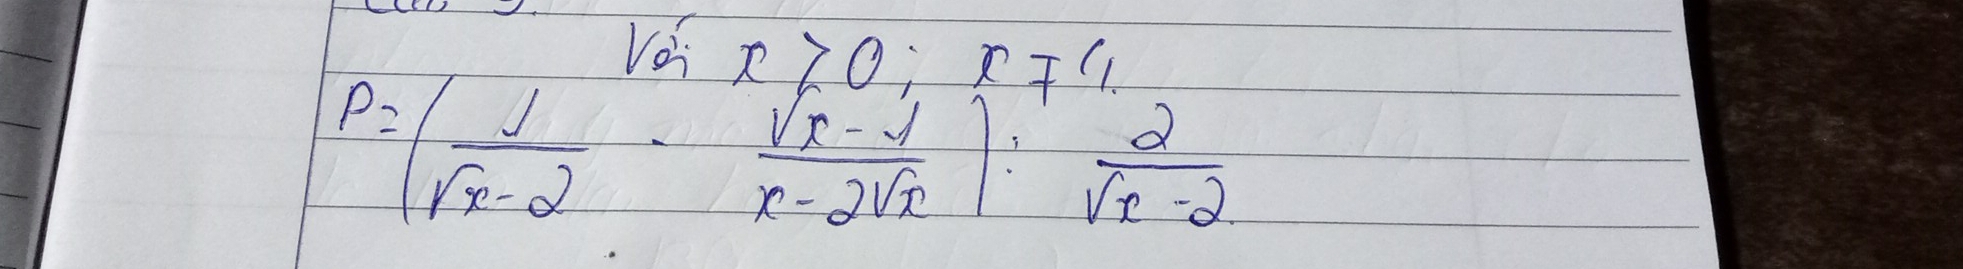 Với x > 0; x ≠ 4.
P = (1/(√x - 2) - (√x - 1)/(x - 2√x)) : 2/(√x - 2)